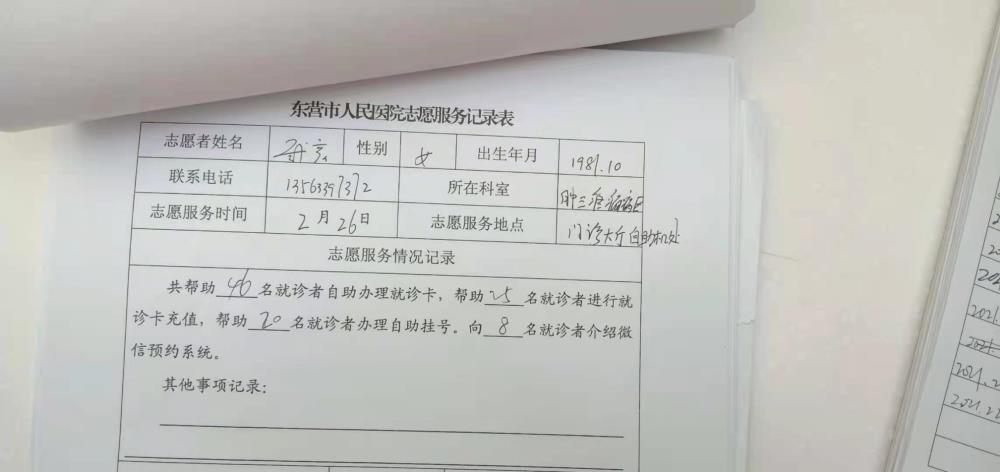 东营市人民医院志愿服务记录表
志愿者姓名 性别 女 出生年月 1981.10
联系电话 所在科室
志愿服务时间 2月26日 志愿服务地点 门诊大厅自助机处
志愿服务情况记录
共帮助46名就诊者自助办理就诊卡，帮助25名就诊者进行就
诊卡充值，帮助20名就诊者办理自助挂号。向8名就诊者介绍微
信预约系统。
其他事项记录：